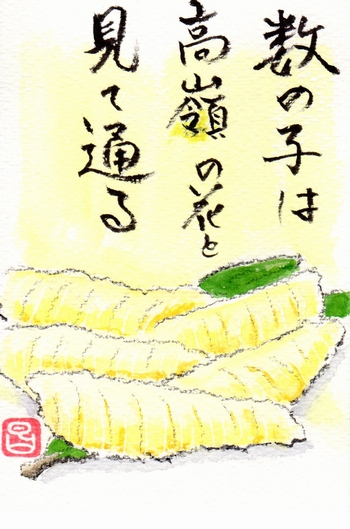 数の子は
高嶺の花と
見て通る